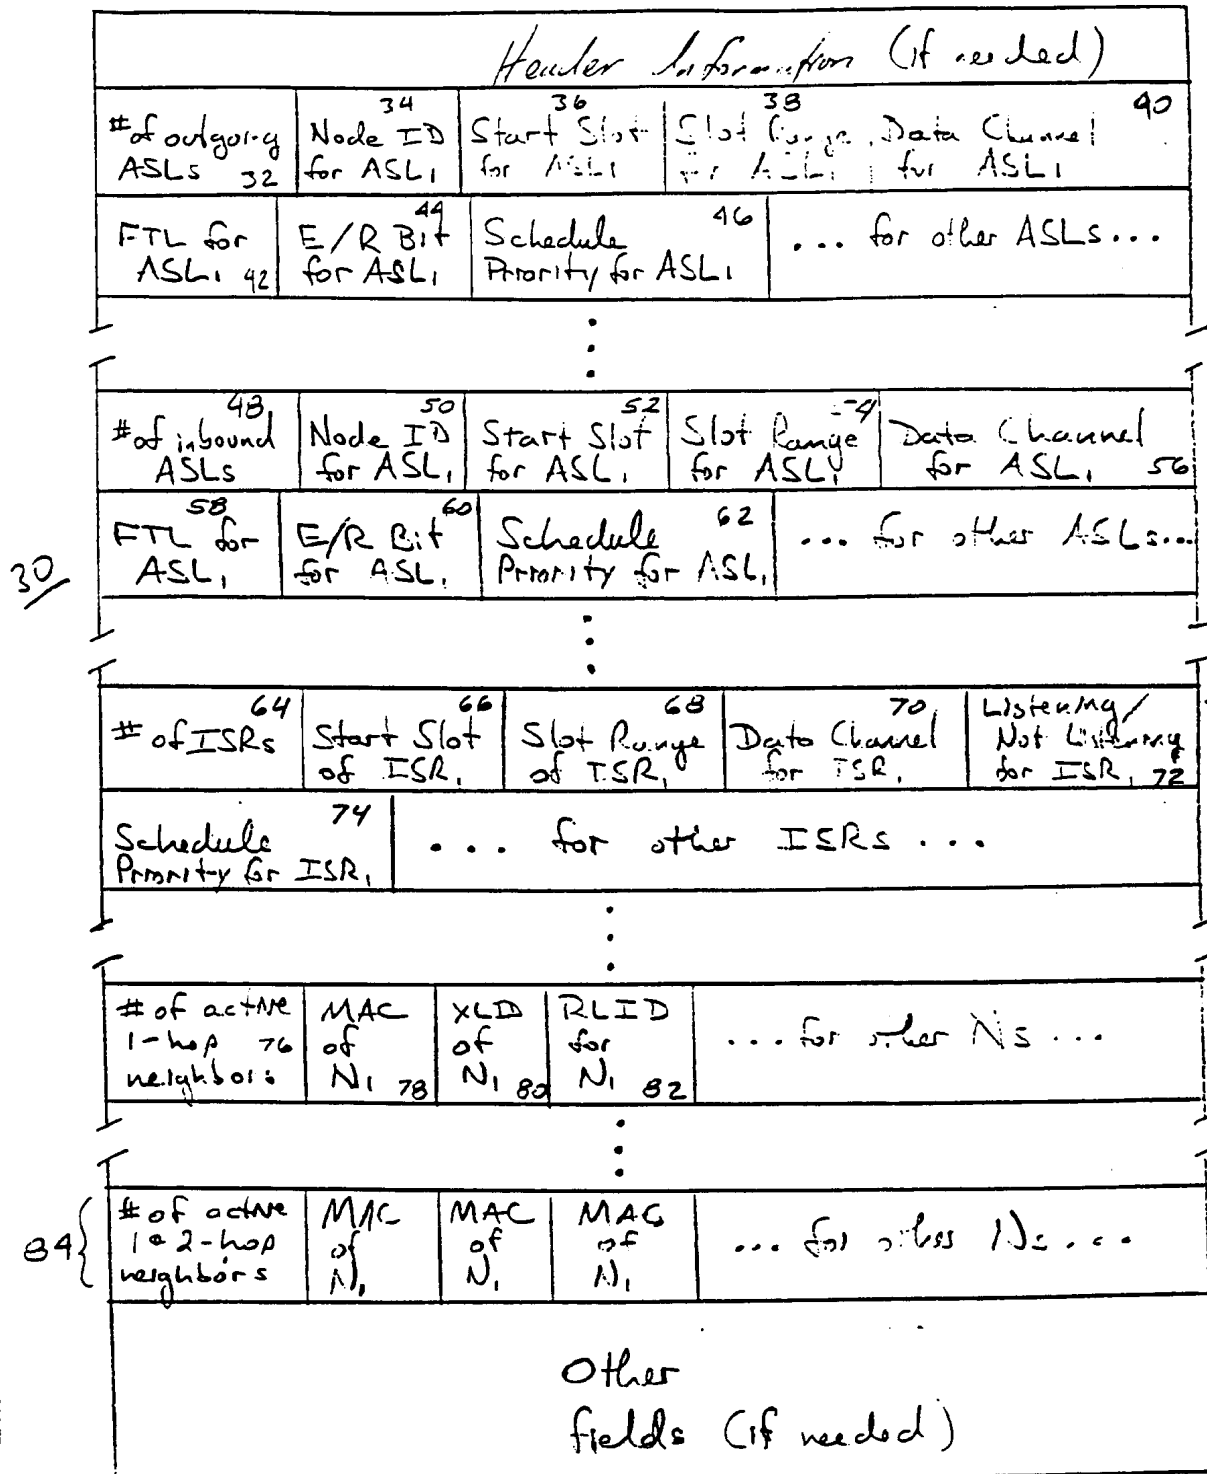 Header Information (if needed)
# of outgoing ASLs 32 | Node ID for ASL1 34 | Start Slot for ASL1 36 | Slot Range for ASL1 38 | Data Channel for ASL1 40
FTL for ASL1 42 | E/R Bit for ASL1 44 | Schedule Priority for ASL1 46 | ... for other ASLs...
# of inbound ASLs 48 | Node ID for ASL1 50 | Start Slot for ASL1 52 | Slot Range for ASL1 54 | Data Channel for ASL1 56
FTL for ASL1 58 | E/R Bit for ASL1 60 | Schedule Priority for ASL1 62 | ... for other ASLs...
30
# of ISRs 64 | Start Slot of ISR1 66 | Slot Range of ISR1 68 | Data Channel for ISR1 70 | Listening/Not Listening for ISR1 72
Schedule Priority for ISR1 74 | ... for other ISRs ...
# of active 1-hop neighbors 76 | MAC of N1 78 | XLD of N1 80 | RLID for N1 82 | ... for other Ns ...
84 { # of active 1 & 2-hop neighbors | MAC of N1 | MAC of N1 | MAC of N1 | ... for other Ns ...
Other
fields (if needed)